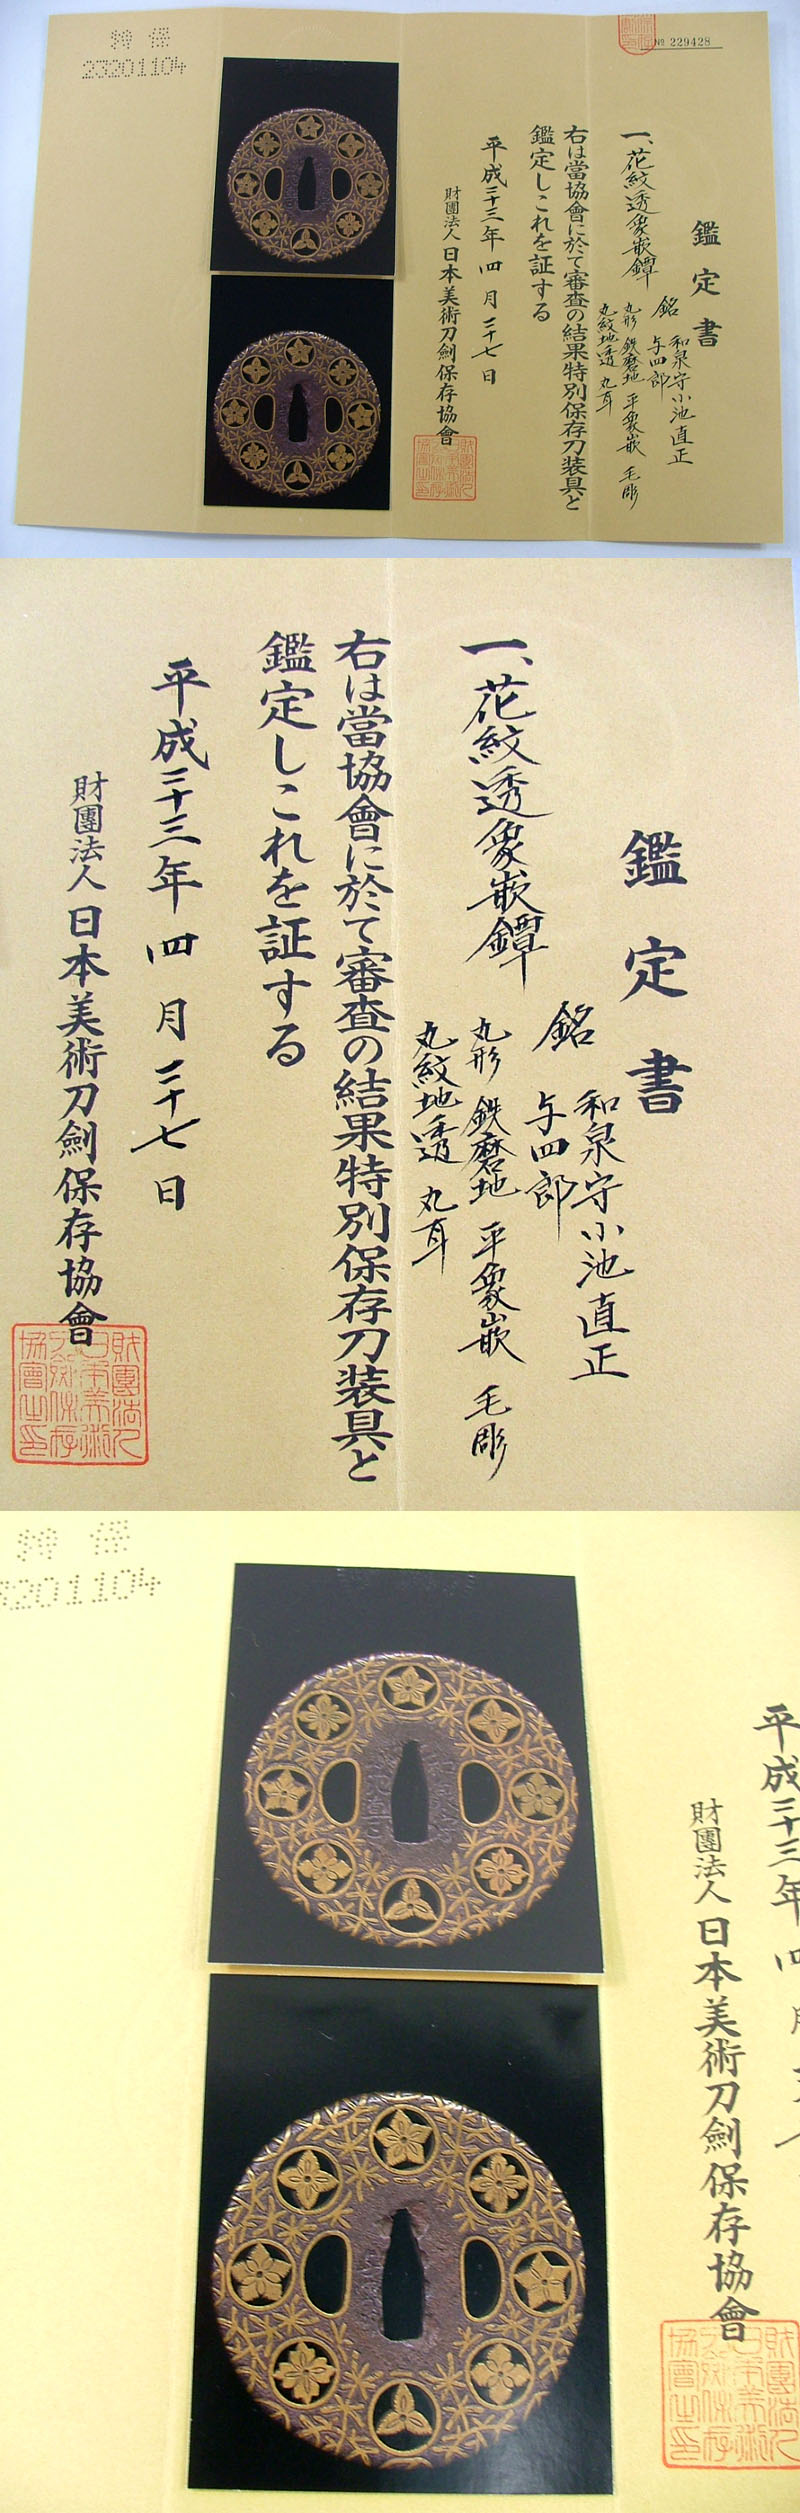 № 229428
鑑定書
一、花紋透象嵌鐔
銘 和泉守小池直正
与四郎
丸形 鉄磨地 平象嵌 毛彫
丸紋地透 丸耳
右は當協會に於て審査の結果特別保存刀装具と
鑑定しこれを証する
平成二十三年四月二十七日
財團法人日本美術刀劍保存協會
財團法人日本美術刀劍保存協會之印
特保
23201104
鑑定書
一、花紋透象嵌鐔
銘 和泉守小池直正
与四郎
丸形 鉄磨地 平象嵌 毛彫
丸紋地透 丸耳
右は當協會に於て審査の結果特別保存刀装具と
鑑定しこれを証する
平成二十三年四月二十七日
財團法人日本美術刀劍保存協會
財團法人日本美術刀劍保存協會之印
平成二十三年四月
財團法人日本美術刀劍保存協會
財團法人日本美術刀劍保存協會之印
特保
3201104